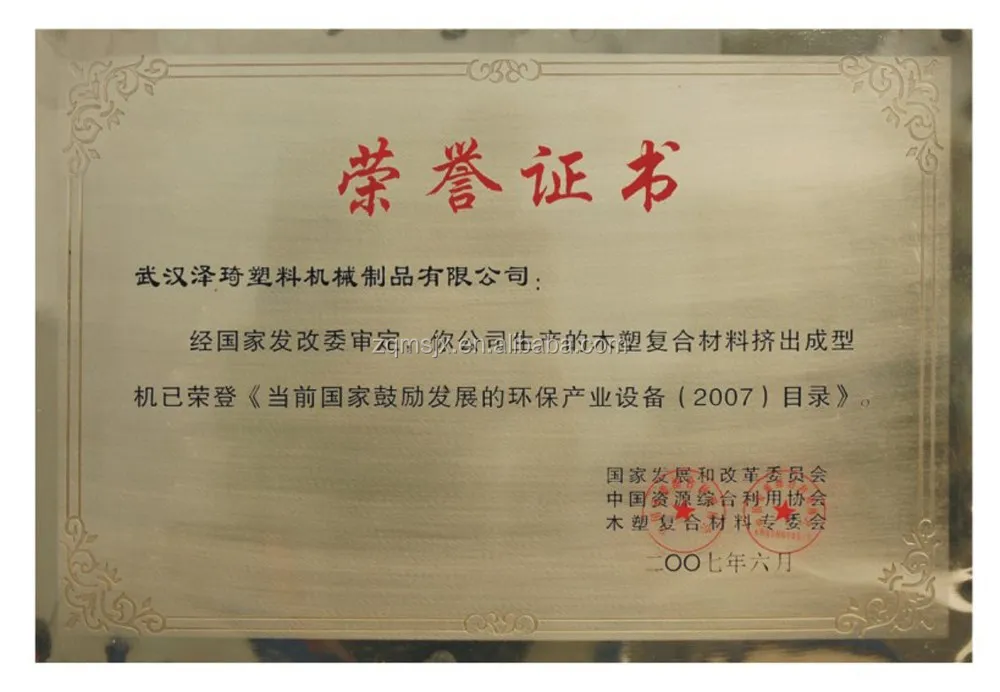 荣誉证书
武汉泽琦塑料机械制品有限公司：
经国家发改委审定，你公司生产的木塑复合材料挤出成型
机已荣登《当前国家鼓励发展的环保产业设备（2007）目录》。
zqmsjx.en.alibaba.com
国家发展和改革委员会
中国资源综合利用协会
木塑复合材料专委会
二〇〇七年六月